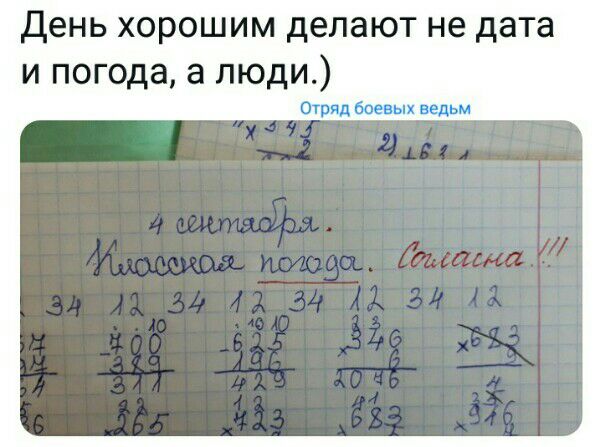 День хорошим делают не дата
и погода, а люди.)
Отряд боевых ведьм
4 сентября.
Классная погода. Согласна!!!
34 12 34 12 34 12 34 12
700 625 346 683
-389 -196 × 6 × 9
311 429 2076
×265 ×723 ×683 ×916